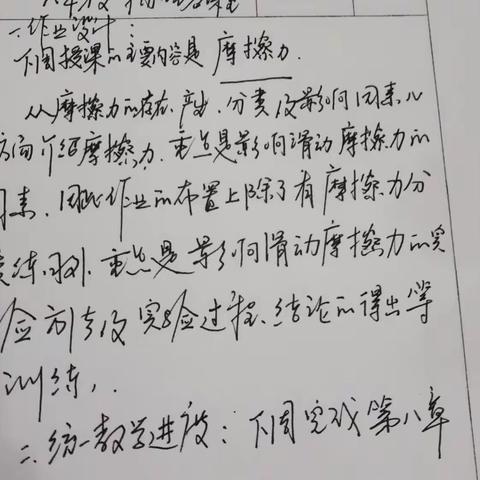 一.作业设计:
下周授课的主要内容是 摩擦力.
从摩擦力的存在.产生.分类及影响因素几
方面介绍摩擦力.重点是影响滑动摩擦力的
因素.因此作业的布置上除了有摩擦力分
类练习外.重点是影响滑动摩擦力的实
验方法及实验过程.结论的得出等
训练,.
二.统一教学进度:下周完成第八章